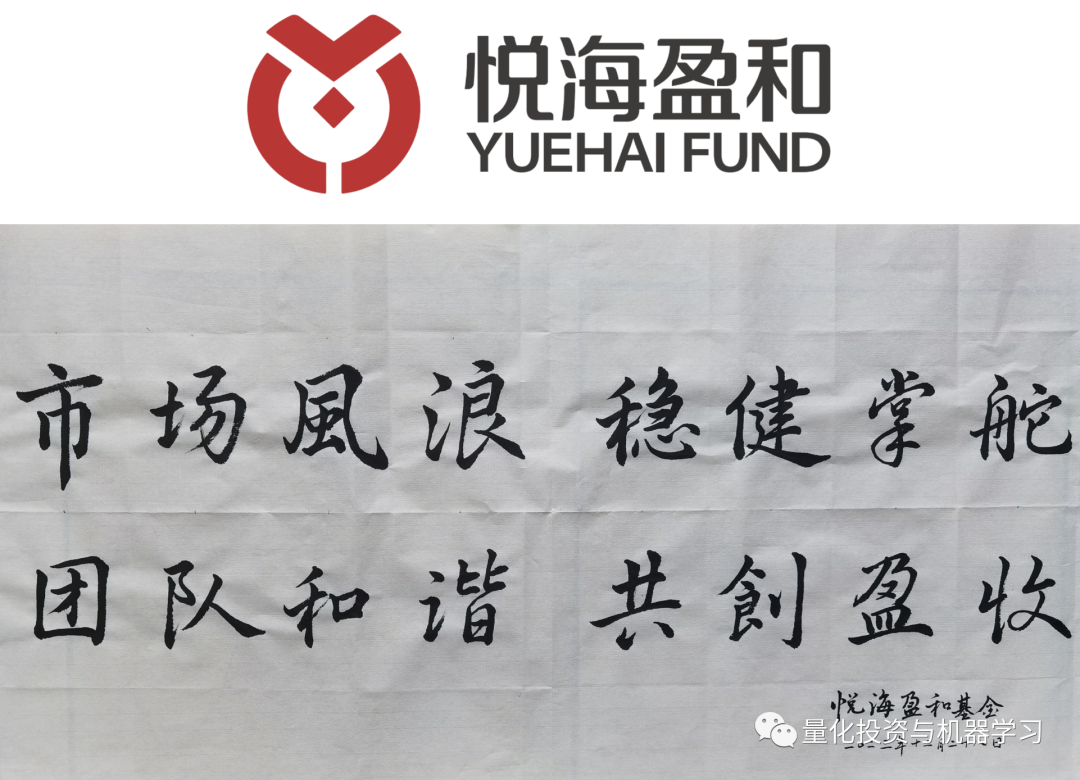 悦海盈和
YUEHAI FUND
市场風浪 稳健掌舵
团队和谐 共創盈收
悦海盈和基金
量化投资与机器学习